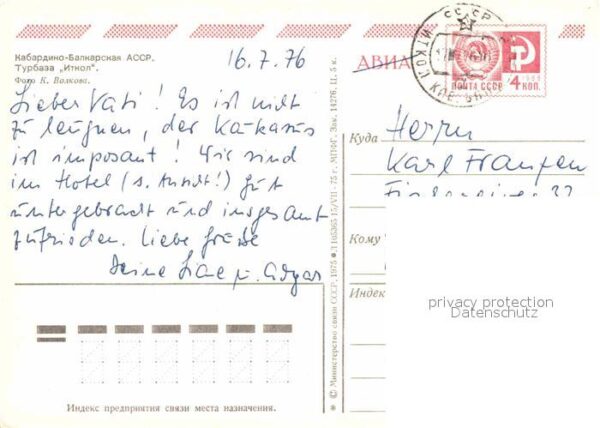 Кабардино-Балкарская АССР.
Турбаза „Иткол".
Фото К. Волкова.
16.7.76
Lieber Vati! Es ist nicht
zu leugnen, der Kaukasus
ist imposant! Wir sind
im Hotel (s. Ansicht!) gut
untergebracht und insgesamt
zufrieden. Liebe Grüße
Deine u.
АВИА
СССР
ПОЧТА СССР
4 КОП.
Куда
Herrn
Karl Franzen
Кому
Индекс
© Министерство связи СССР. 1975
privacy protection
Datenschutz
Индекс предприятия связи места назначения.